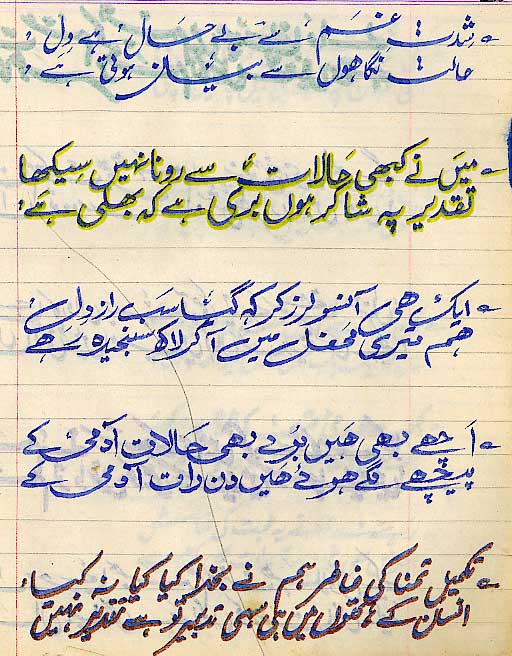 شدتِ غم سے بے حال ہے دل
حالت نگاھوں سے بیان ہوتی ہے
میں نے کبھی حالات سے رونا نہیں سیکھا
تقدیر پہ شاکر ہوں بری ہے کہ بھلی ہے
ایک ھی آنسو لرز کر کہہ گیا سب راز دل
ھم تیری محفل میں آکر لاکھ سنجیدہ رہے
اچھے بھی ھیں بُرے بھی حالات آدمی کے
پیچھے لگے ھوئے ھیں دن رات آدمی کے
تکمیلِ تمنا کی خاطر ہم نے بخدا کیا کیا نہ کیا
انسان کے ہاتھوں میں ہی سہی تدبیر تو ہے تقدیر نہیں